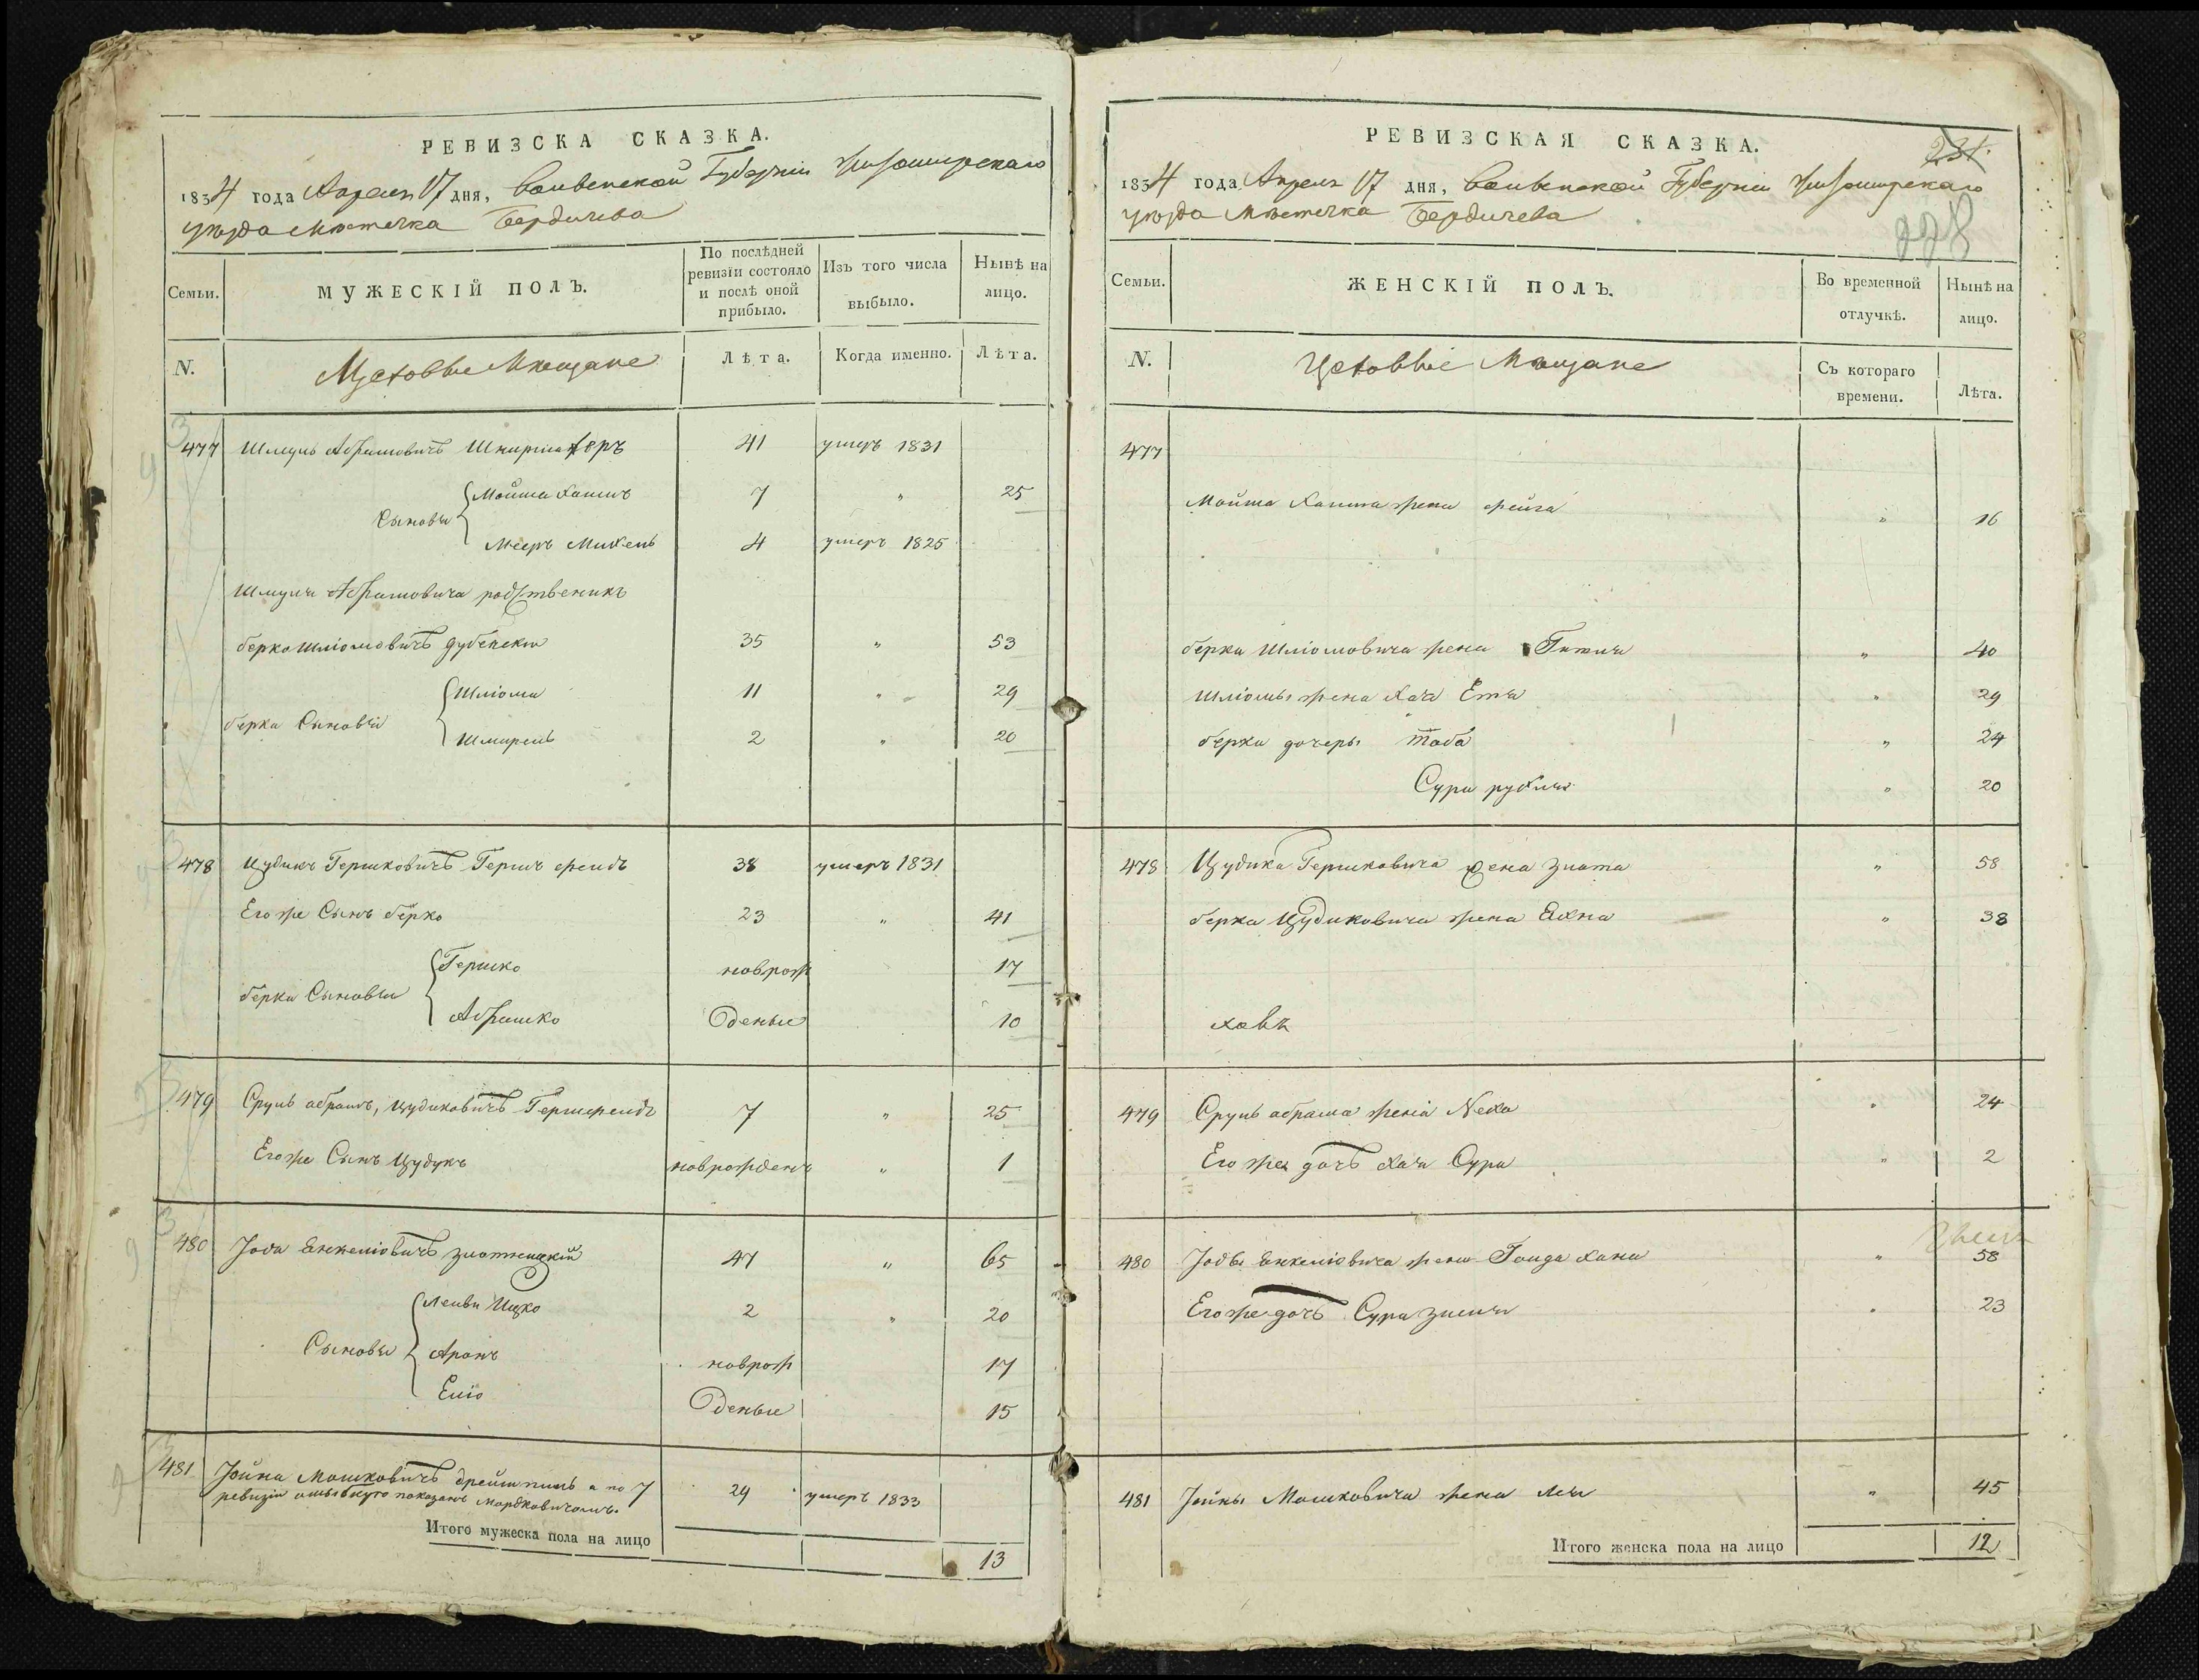 РЕВИЗСКА СКАЗКА.
1834 года Апреля 17 дня, Волынской Губернии Житомирскаго
уезда Местечка Бердичева
Семьи.
МУЖЕСКІЙ ПОЛЪ.
По послѣдней ревизіи состояло и послѣ оной прибыло.
Изъ того числа выбыло.
Нынѣ на лицо.
N.
Цеховые Мещане
Лѣта.
Когда именно.
Лѣта.
477 Шмуль Абрамовичъ 41 умеръ 1831
Сыновья
Мойша Хаимъ 7 " 25
Мееръ Михель 4 умеръ 1825
Шмуля Абрамовича родственикъ
Берко Шліомовичъ Дубенски 35 " 53
Берка Сыновья
Шліома 11 " 29
Шмирель 2 " 20
478 Цудикъ Гершковичъ 38 умеръ 1831
Его же Сынъ Берко 23 " 41
Берка Сыновья
Гершко новрож 17
Абрашко Деные 10
479 Сруль Абрамъ, Цудиковичъ 7 " 25
Его же Сынъ Цудукъ новрожденъ " 1
480 Янкеліовичъ Златницкій 47 " 65
Сыновья
Лейви Ицко 2 " 20
Аронъ новрож 17
Еліо Деные 15
481 Іойна Мошковичъ а по 7 29 умеръ 1833
ревизіи показанъ Мордковичомъ.
Итого мужеска пола на лицо 13
РЕВИЗСКАЯ СКАЗКА.
231.
228
1834 года Апреля 17 дня, Волынской Губернии Житомирскаго
уезда Местечка Бердичева
Семьи.
ЖЕНСКІЙ ПОЛЪ.
Во временной отлучкѣ.
Нынѣ на лицо.
N.
Цеховые Мещане
Съ котораго времени.
Лѣта.
477
Мойша Хаима жена Фейга " 16
Берки Шліомовича жена " 40
Шліомы жена Хая Етя " 29
Берки дочеры Тоба " 24
Сура Рухля " 20
478 Цудика Гершковича жена Злота " 58
Берка Цудиковича жена Яхна " 38
479 Сруль Абрама жена Неха " 24
Его же дочь Хая Сура " 2
480 Янкеліовича жена Хана " 58
Его же дочь Сура " 23
481 Іойны Мошковича жена Лея " 45
Итого женска пола на лицо 12